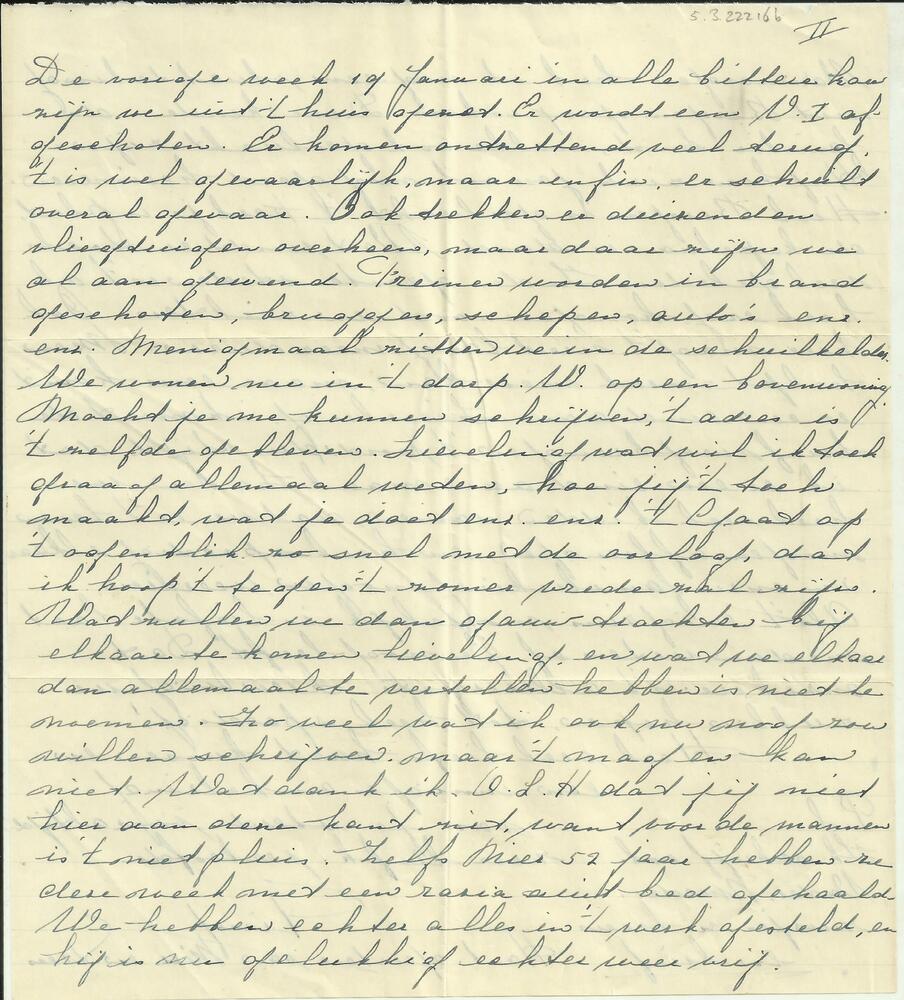 5.3.222166
II
De vorige week 19 Januari in alle bittere kou
zijn we uit 't huis gezet. Er wordt een V.I af
geschoten. Er komen ontzettend veel terug,
't is wel gevaarlijk, maar enfin, er schuilt
overal gevaar. Ook trekken er duizenden
vliegtuigen overheen, maar daar zijn we
al aan gewend. Treinen worden in brand
geschoten, bruggen, schepen, auto's enz.
enz. Menigmaal zitten we in de schuilkelder.
We wonen nu in 't dorp. W. op een bovenwoning
Mocht je me kunnen schrijven, 't adres is
't zelfde gebleven. Lieveling wat wil ik toch
graag allemaal weten, hoe jij 't toch
maakt, wat je doet enz. enz. 't Gaat op
't oogenblik zo snel met de oorlog, dat
ik hoop 't tegen 't zomer vrede zal zijn.
Wat zullen we dan gauw trachten bij
elkaar te komen lieveling, en wat we elkaar
dan allemaal te vertellen hebben is niet te
noemen. Zo veel wat ik ook nu nog zou
willen schrijven. maar 't mag en kan
niet. Wat dank ik. O.L.H dat jij niet
hier aan deze kant zit, want voor de mannen
is 't niet pluis. Zelfs Mier 52 jaar hebben ze
deze week met een razia uit bed gehaald
We hebben echter alles in 't werk gesteld, en
hij is nu gelukkig echter weer vrij.